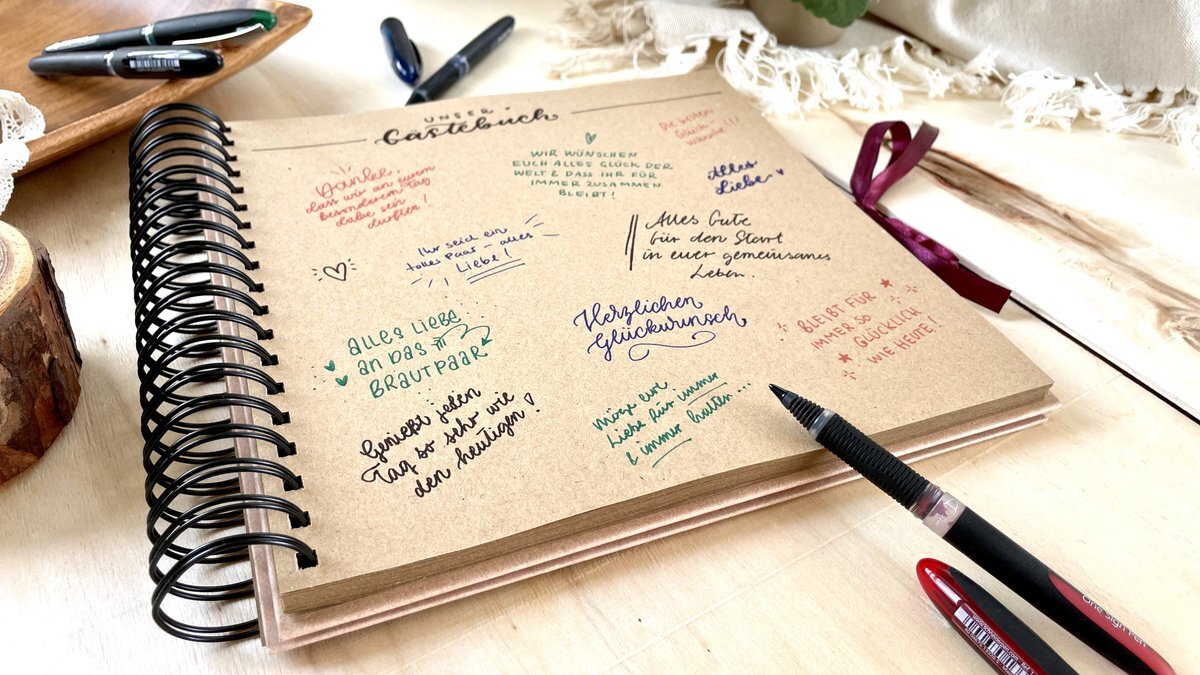 UNSER
Gästebuch
Danke,
dass wir an eurem
besonderen Tag
dabei sein
durften!
WIR WÜNSCHEN
EUCH ALLES GLÜCK DER
WELT & DASS IHR FÜR
IMMER ZUSAMMEN
BLEIBT!
Die besten
Glück-
wünsche!!!
Alles
Liebe
Ihr seid ein
tolles Paar – alles
Liebe!
Alles Gute
für den Start
in euer gemeinsames
Leben.
ALLES LIEBE
AN DAS
BRAUTPAAR
Herzlichen
Glückwunsch
BLEIBT FÜR
IMMER SO
GLÜCKLICH
WIE HEUTE!
Genießt jeden
Tag so sehr wie
den heutigen!
Möge eure
Liebe für immer
& immer halten ...
One Sign Pen